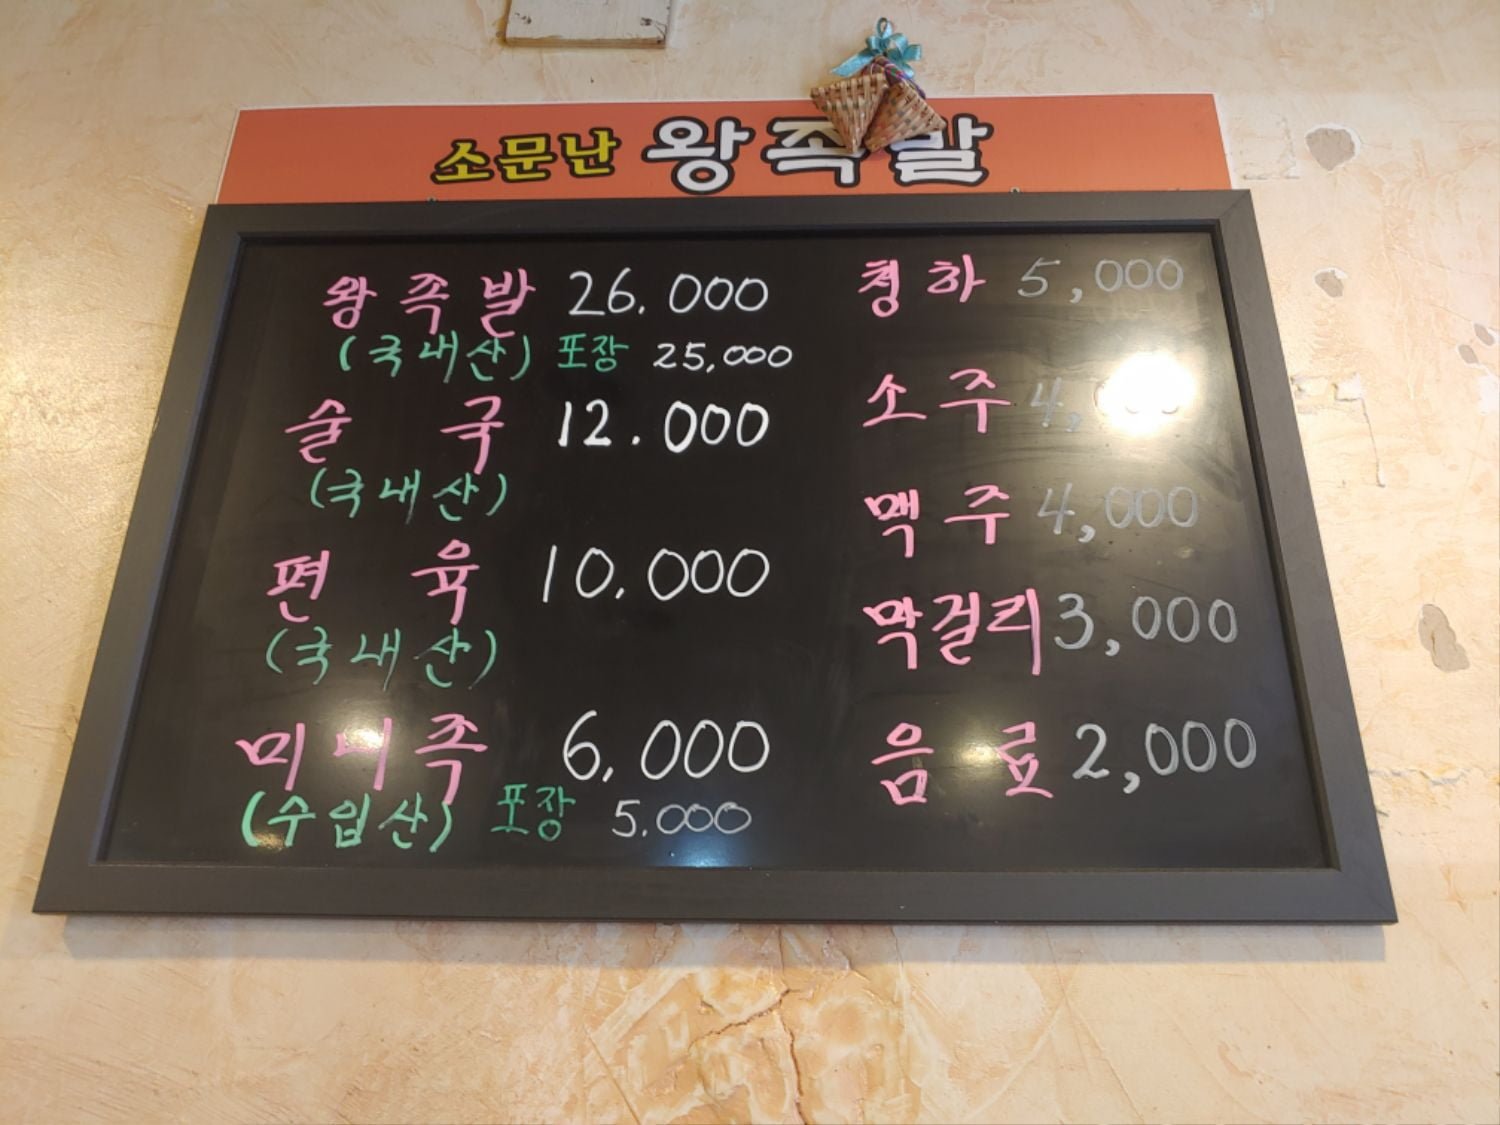 소문난 왕족발
왕족발 26.000
(국내산) 포장 25,000
술국 12.000
(국내산)
편육 10.000
(국내산)
미니족 6,000
(수입산) 포장 5.000
청하 5,000
소주 4,
맥주 4,000
막걸리 3,000
음료 2,000